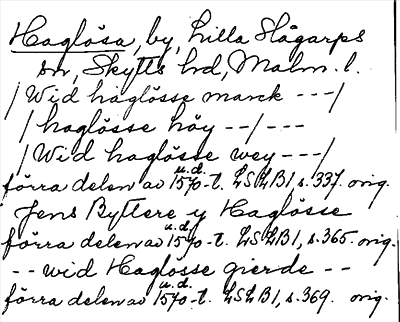 Haglösa, by, Lilla Slågarps
sn, Skytts hd, Malm. l.
/ Wid haglösse marck ---/
/ haglösse höy --/---
/ Wid haglösse wey ---/
u.d.
förra delen av 1570-t. LSLB1, s. 337. orig.
Jens Byttere y Haglösse
u.d.
förra delen av 1570-t. LSLB1, s. 365. orig.
-- wid Haglösse gierde --
u.d.
förra delen av 1570-t. LSLB1, s. 369. orig.